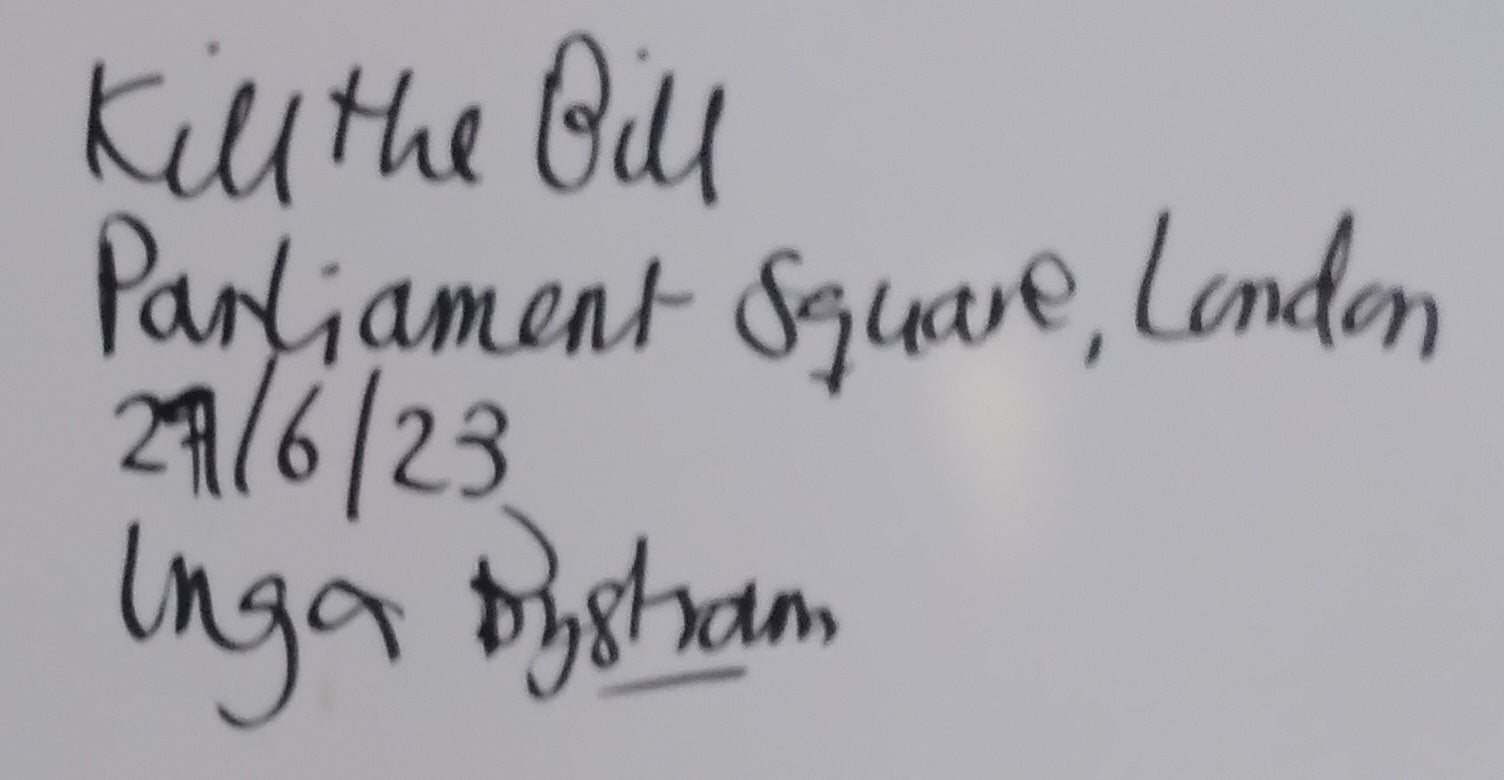 Kill the Bill
Parliament Square, London
27/6/23
Inga Bystram